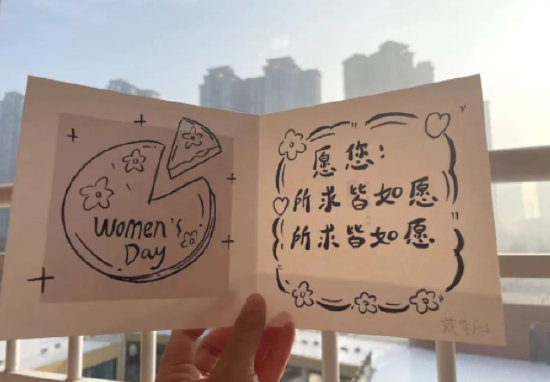 Women's
Day
愿您：
所求皆如愿
所求皆如愿